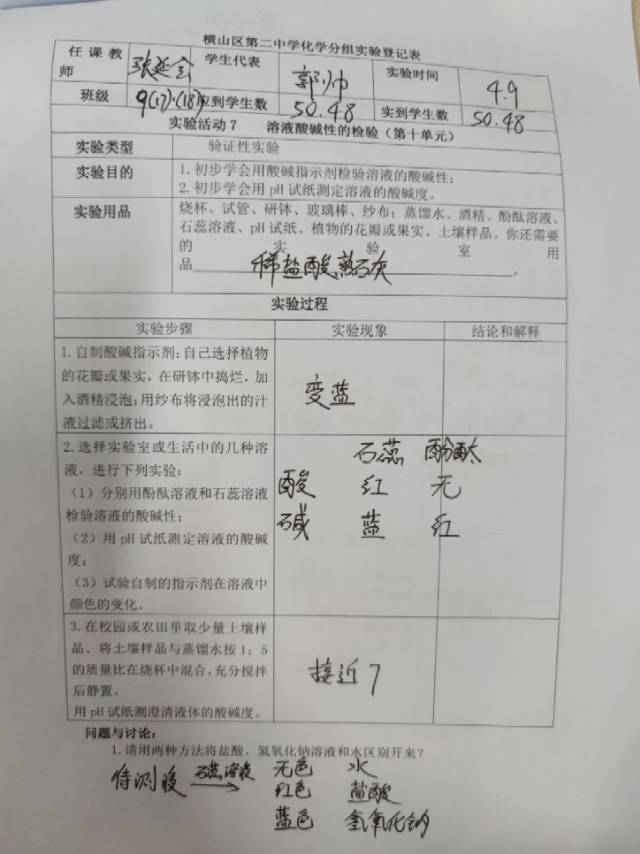 横山区第二中学化学分组实验登记表
任课教师 张延会 学生代表 郭帅 实验时间 4.9
班级 9(17)·(18) 应到学生数 50.48 实到学生数 50.48
实验活动7 溶液酸碱性的检验（第十单元）
实验类型 验证性实验
实验目的 1.初步学会用酸碱指示剂检验溶液的酸碱性；
2.初步学会用 pH 试纸测定溶液的酸碱度。
实验用品 烧杯、试管、研钵、玻璃棒、纱布；蒸馏水、酒精、酚酞溶液、
石蕊溶液、pH试纸、植物的花瓣或果实、土壤样品。你还需要
的实验室用
品 稀盐酸 熟石灰 。
实验过程
实验步骤 实验现象 结论和解释
1.自制酸碱指示剂：自己选择植物
的花瓣或果实，在研钵中捣烂，加
入酒精浸泡；用纱布将浸泡出的汁
液过滤或挤出。
变蓝
2.选择实验室或生活中的几种溶
液，进行下列实验：
（1）分别用酚酞溶液和石蕊溶液
检验溶液的酸碱性；
（2）用 pH 试纸测定溶液的酸碱
度；
（3）试验自制的指示剂在溶液中
颜色的变化。
石蕊 酚酞
酸 红 无
碱 蓝 红
3.在校园或农田里取少量土壤样
品。将土壤样品与蒸馏水按 1：5
的质量比在烧杯中混合，充分搅拌
后静置。
用 pH 试纸测澄清液体的酸碱度。
接近7
问题与讨论：
1.请用两种方法将盐酸、氢氧化钠溶液和水区别开来？
待测液 石蕊溶液→ 无色 水
红色 盐酸
蓝色 氢氧化钠